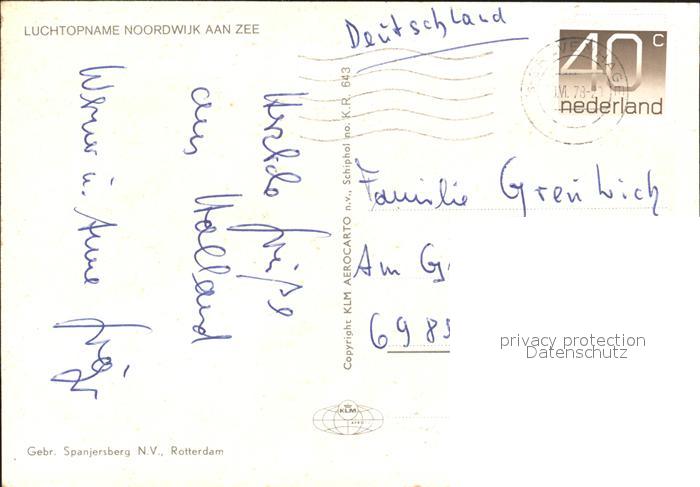 LUCHTOPNAME NOORDWIJK AAN ZEE
Herzliche Grüße
aus Holland
Werner u. Anne
Gebr. Spanjersberg N.V., Rotterdam
Copyright KLM AEROCARTO n.v., Schiphol no. K.R. 643
KLM
Deutschland
40 c
nederland
VI. 78
Familie
Am G
698
privacy protection
Datenschutz